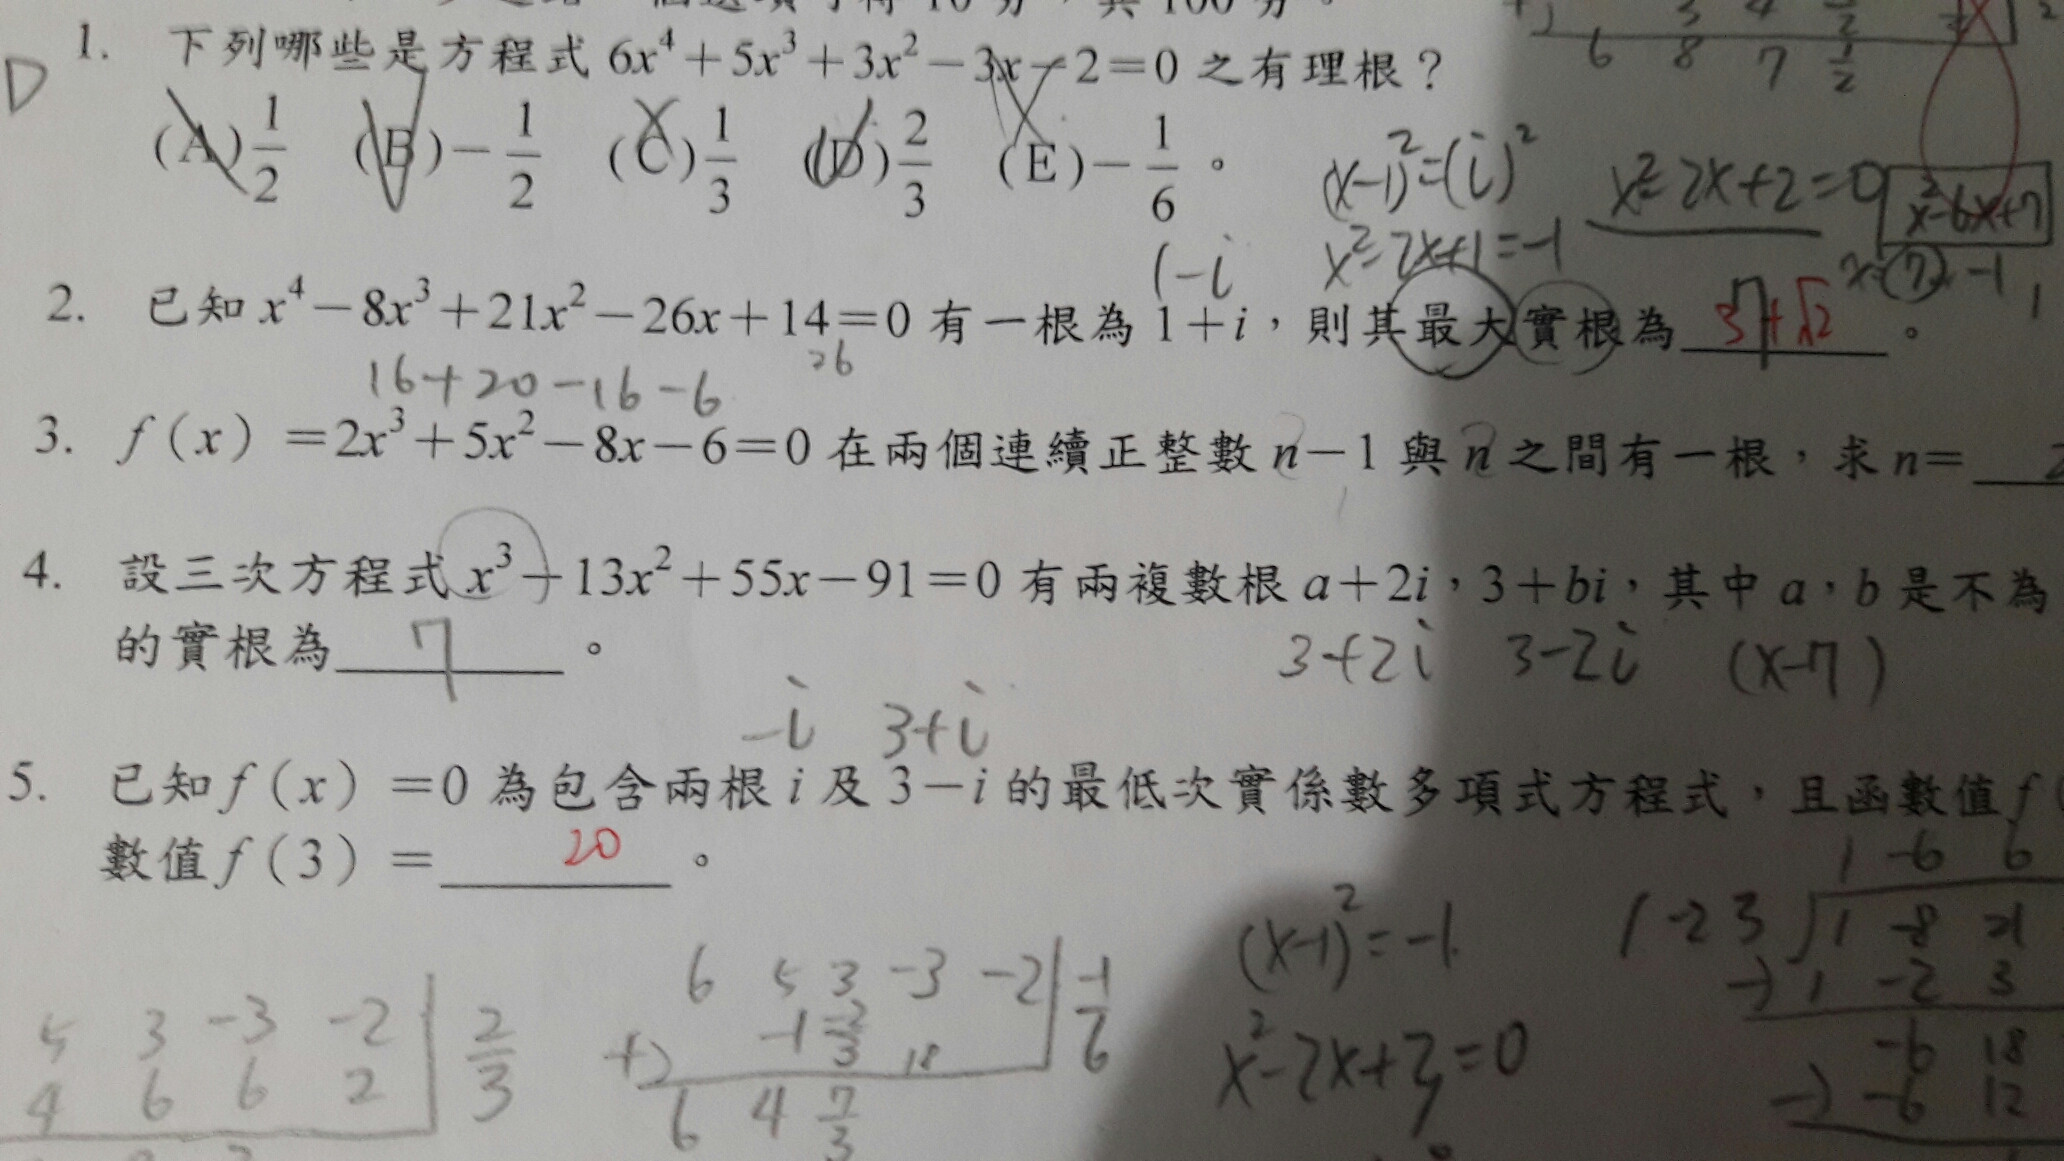 10 分,共 100 分。
1. 下列哪些是方程式 6x⁴+5x³+3x²-3x-2=0 之有理根?
D
(A) 1/2 (B)-1/2 (C) 1/3 (D) 2/3 (E)-1/6 。
6 8 7 1/2
(x-1)²=(i)²
x²-2x+2=0
x²-6x+7
x²-2x+1=-1
1-i
2. 已知 x⁴-8x³+21x²-26x+14=0 有一根為 1+i,則其最大實根為 3+√2 。
26
16+20-16-6
3. f(x)=2x³+5x²-8x-6=0 在兩個連續正整數 n-1 與 n 之間有一根,求 n= 2
4. 設三次方程式 x³-13x²+55x-91=0 有兩複數根 a+2i,3+bi,其中 a,b 是不為
的實根為 7 。
3+2i 3-2i (x-7)
-i 3+i
5. 已知 f(x)=0 為包含兩根 i 及 3-i 的最低次實係數多項式方程式,且函數值 f(
數值 f(3)= 20 。
1 -6 6
1 -2 3 1 -8 21
1 -2 3
-6 18
-6 12
(x-1)²=-1
x²-2x+3=0
6 5 3 -3 -2 -1/6
-1 -2/3 18
6 4 7/3
5 3 -3 -2 2/3
4 6 6 2